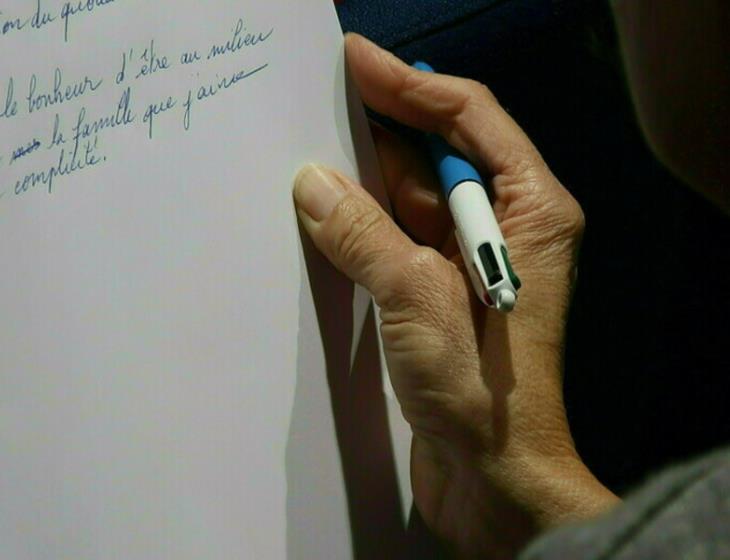 ion du quoti
le bonheur d'être au milieu
la famille que j'aime
complicité.